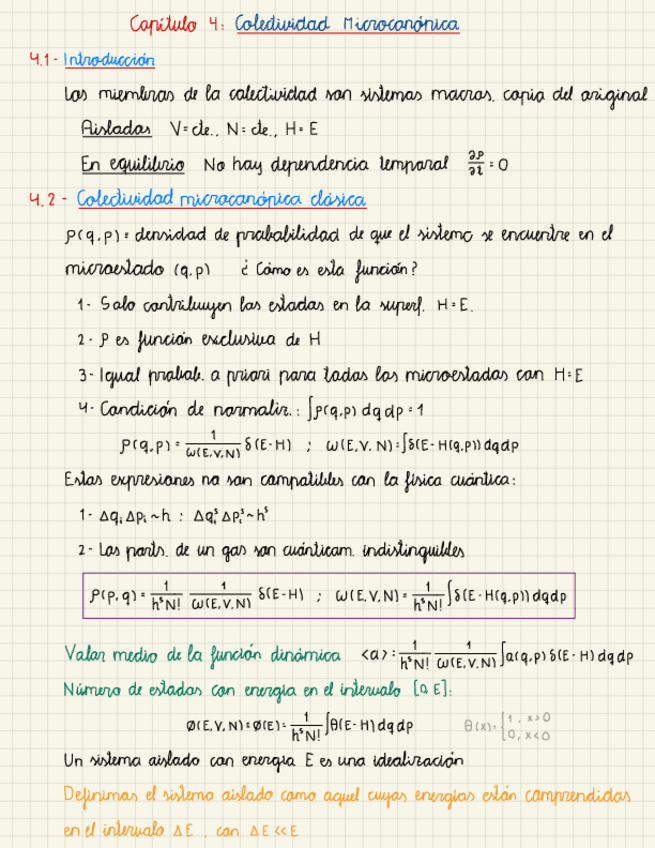 Capítulo 4: Colectividad Microcanónica
4.1- Introducción
Los miembros de la colectividad son sistemas macros. copia del original
Aislados V=cte., N=cte., H=E
En equilibrio No hay dependencia temporal ∂ρ/∂t = 0
4.2- Colectividad microcanónica clásica
ρ(q,p)= densidad de probabilidad de que el sistema se encuentre en el
microestado (q,p) ¿Cómo es esta función?
1- Solo contribuyen los estados en la superf. H=E.
2- ρ es función exclusiva de H
3- Igual probab. a priori para todos los microestados con H=E
4- Condición de normaliz.: ∫ρ(q,p) dq dp = 1
ρ(q,p) = 1/ω(E,V,N) δ(E-H) ; ω(E,V,N)=∫δ(E-H(q,p)) dq dp
Estas expresiones no son compatibles con la física cuántica:
1- Δqᵢ Δpᵢ ~ h : Δqᵢˢ Δpᵢˢ ~ hˢ
2- Las parts. de un gas son cuánticam. indistinguibles
ρ(p,q) = 1/(hˢN!) 1/ω(E,V,N) δ(E-H) ; ω(E,V,N) = 1/(hˢN!) ∫δ(E-H(q,p)) dq dp
Valor medio de la función dinámica <a> = 1/(hˢN!) 1/ω(E,V,N) ∫a(q,p) δ(E-H) dq dp
Número de estados con energía en el intervalo [0,E]:
Ø(E,V,N)=Ø(E)= 1/(hˢN!) ∫θ(E-H) dq dp θ(x)={1, x>0 0, x<0
Un sistema aislado con energía E es una idealización
Definimos el sistema aislado como aquel cuyas energías están comprendidas
en el intervalo ΔE, con ΔE<<E